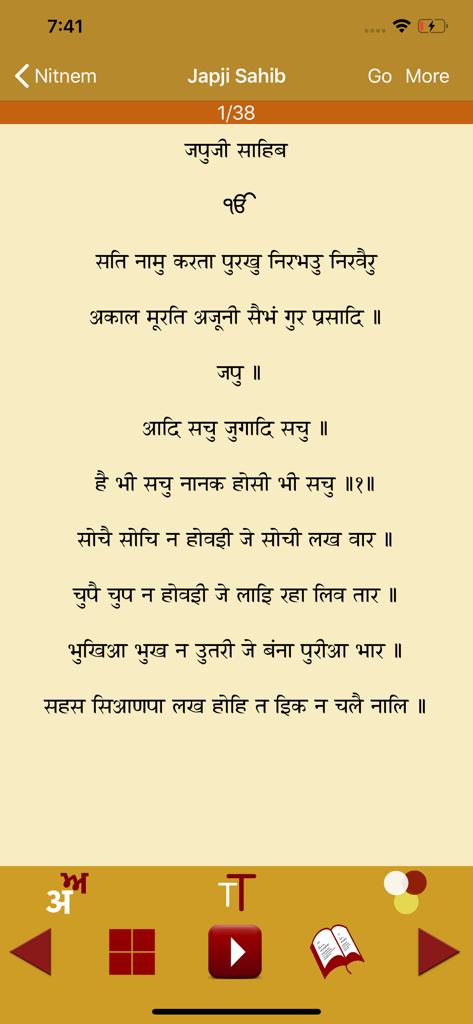 7:41
Nitnem
Japji Sahib
Go
More
1/38
जपुजी साहिब
ੴ
सति नामु करता पुरखु निरभउ निरवैरु
अकाल मूरति अजूनी सैभं गुर प्रसादि ॥
जपु ॥
आदि सचु जुगादि सचु ॥
है भी सचु नानक होसी भी सचु ॥१॥
सोचै सोचि न होवई जे सोची लख वार ॥
चुपै चुप न होवई जे लाइ रहा लिव तार ॥
भुखिआ भुख न उतरी जे बंना पुरीआ भार ॥
सहस सिआणपा लख होहि त इक न चलै नालि ॥
अ ਅ
TT